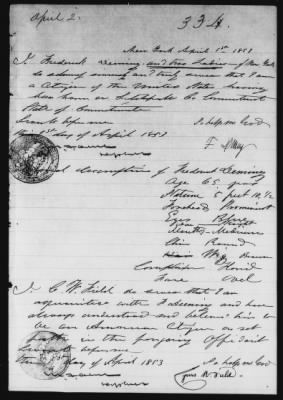 April 2.
334.
New York April 1st 1853
I Frederick Deming and two Ladies of New York
do solemnly and truly swear that I am
a Citizen of the United States having
been born in Litchfield Co Connecticut
State of Connecticut
Sworn to before me So help me God
this 1st day of April 1853
F Deming
description of Frederick Deming
Age 65 years
Stature 5 feet 10 1/2
Forehead Prominent
Eyes
Mouth Medium
Chin Round
Hair Wig Brown
Complexion Florid
Face Oval
I C W Field do swear that I am
acquainted with F Deming and have
always understood and believe him to
be an American Citizen as set
forth in the foregoing Affidavit
Sworn to before me
this day of April 1853 So help me God
Cyrus W Field